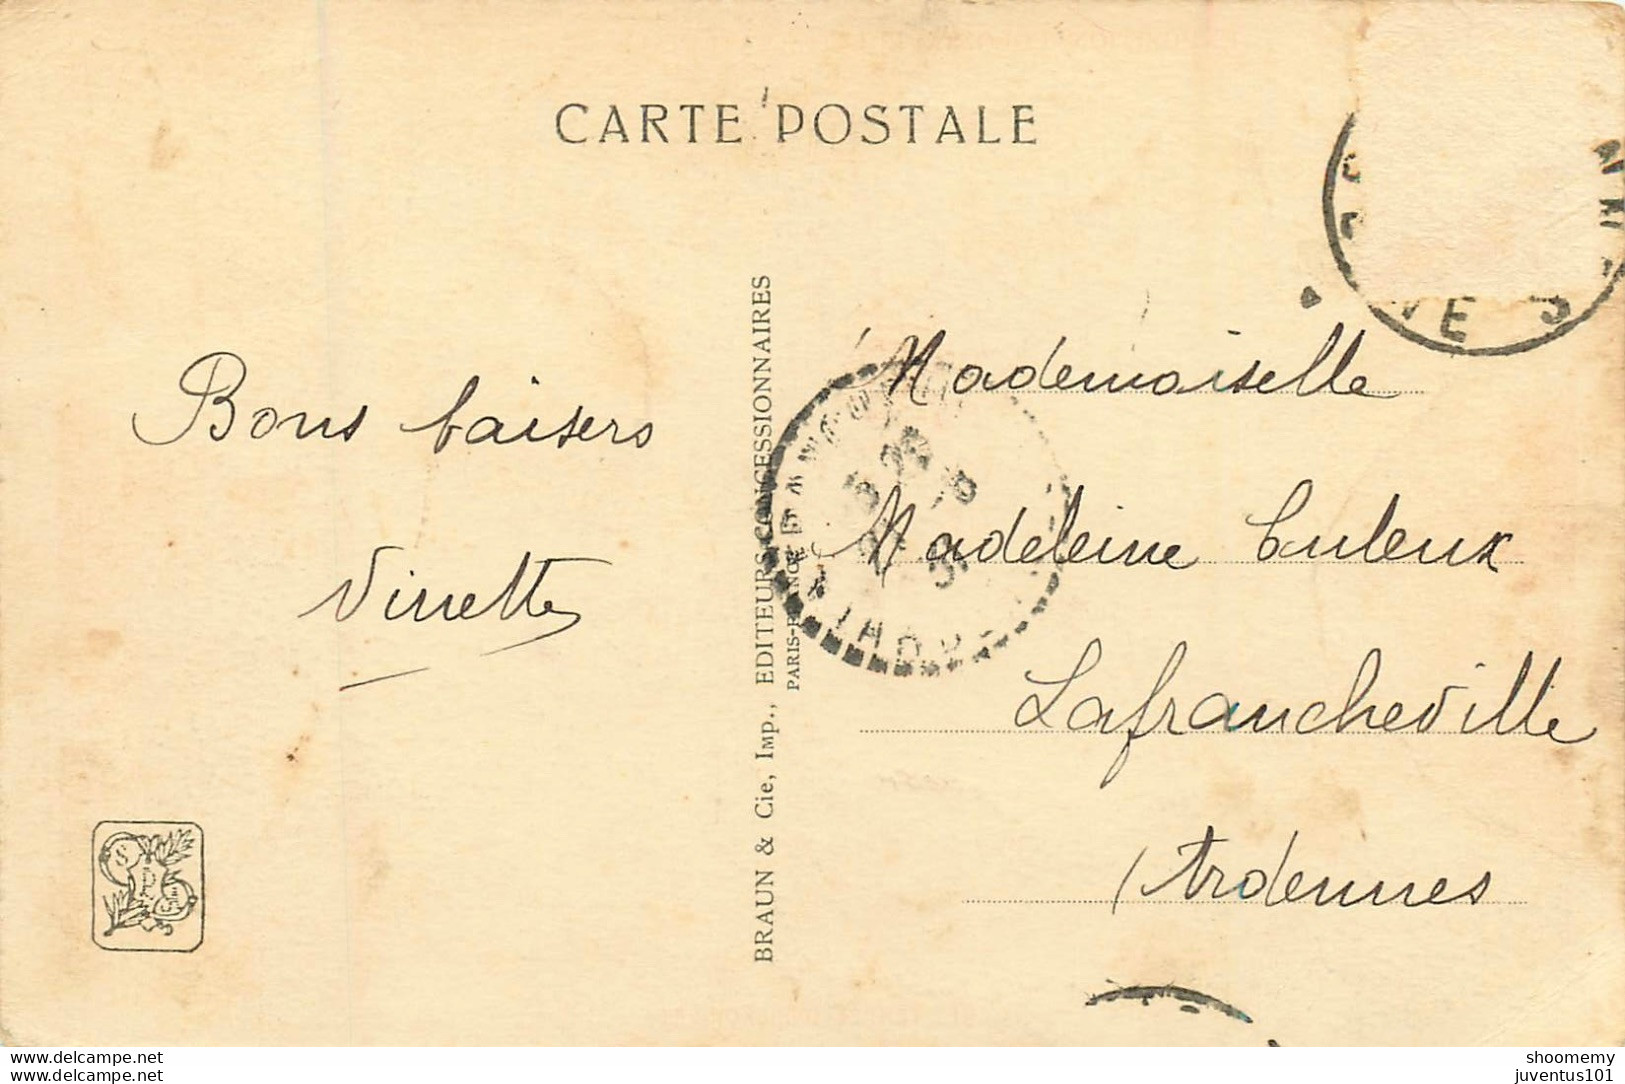 CARTE POSTALE
Bons baisers
Vinette
BRAUN & Cie, IMP., EDITEURS-CONCESSIONNAIRES
PARIS-FRANCE
Mademoiselle
Madeleine
Lafrancheville
Ardennes
juventus101.com
shoomemy
juventus101